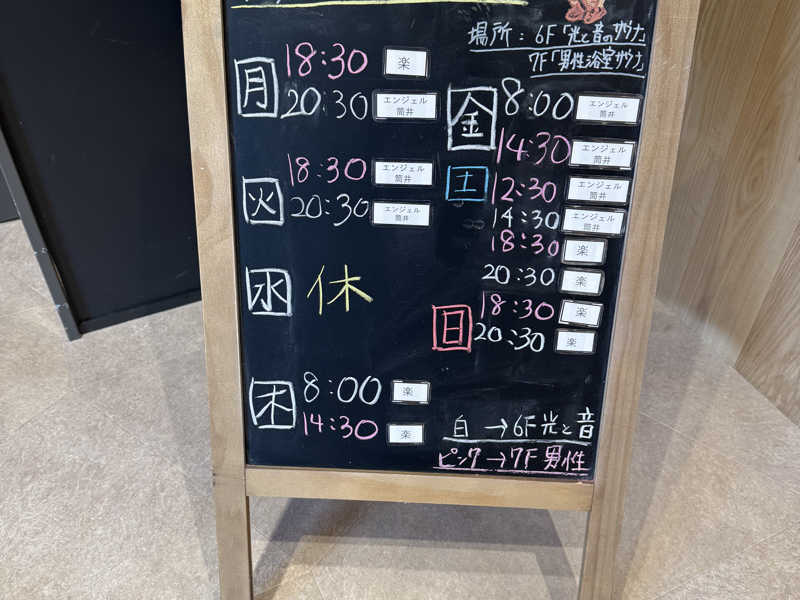 場所：6F「光と音のサウナ」
7F「男性浴室サウナ」
月
18:30 楽
20:30 エンジェル筒井
火
18:30 エンジェル筒井
20:30 エンジェル筒井
水 休
木
8:00 楽
14:30 楽
金
8:00 エンジェル筒井
14:30 エンジェル筒井
土
12:30 エンジェル筒井
14:30 エンジェル筒井
18:30 楽
20:30 楽
日
18:30 楽
20:30 楽
白→6F光と音
ピンク→7F男性